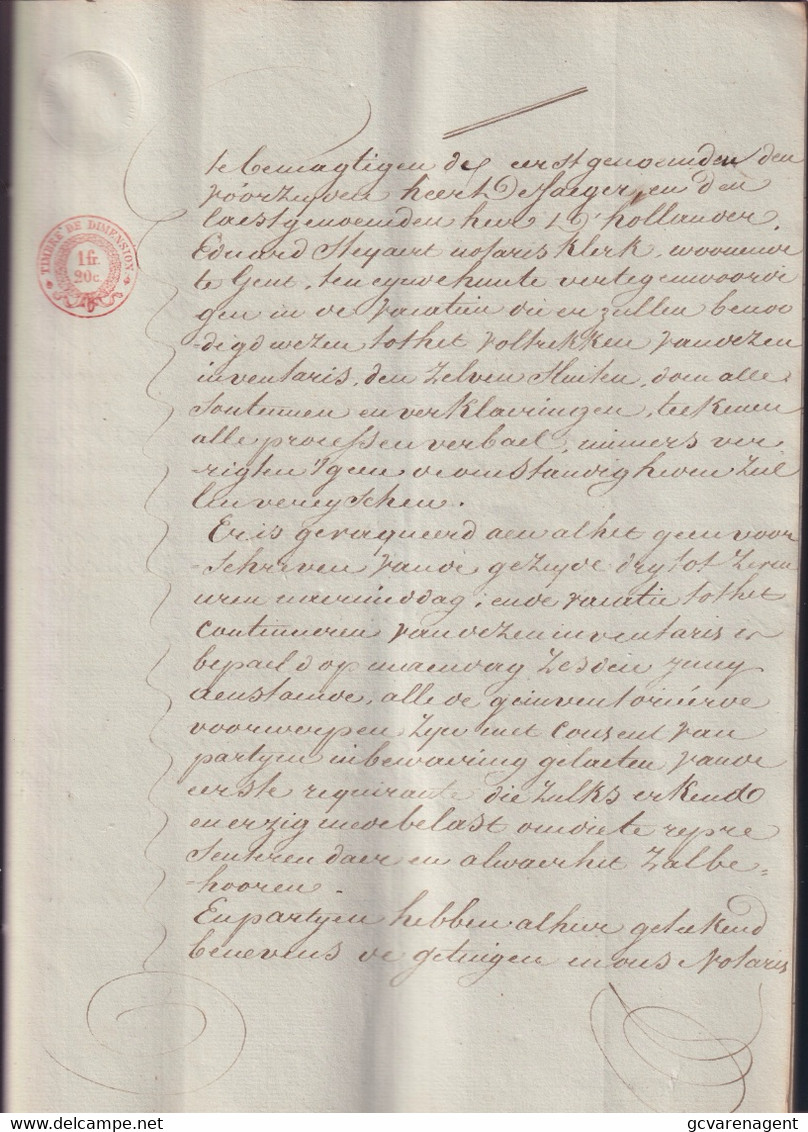 TIMBRE DE DIMENSION
1 fr
20 c.
te bemagtigen de eerstgenoemden den
voorzeyden heer De Jaeger, en den
laestgenoemden heer D'hollander,
Eduard Steyaert notarisklerk, woonende
te Gent, ten eynde hunte vertegenwoordi
gen in de vacatien die er zullen benoo
-digd wezen tot het voltrekken van dezen
inventaris, den zelven sluiten, doen alle
soutenuen en verklaeringen, teekenen
alle processen verbael, immers ver
-rigten 't geen de omstandigheden zul
len vereyschen.
Er is gevaqueerd aen al het geen voor
-schreven van de gezeyde dry tot zeven
uren naermiddag; en de vacatie tot het
continueren van dezen inventaris is
bepaeld op maendag zesden juny
aenstaende, alle de geinventorieërde
voorwerpen zyn met consent van
partyen in bewaering gelaeten van de
eerste requirante die zulks erkend
en er zig mede belast om die te repre
senteren daer en alwaer het zal be=
-hooren.
En partyen hebben alhier geteekend
benevens de getuigen en ons Notaris
gcvarenagent
delcampe.net